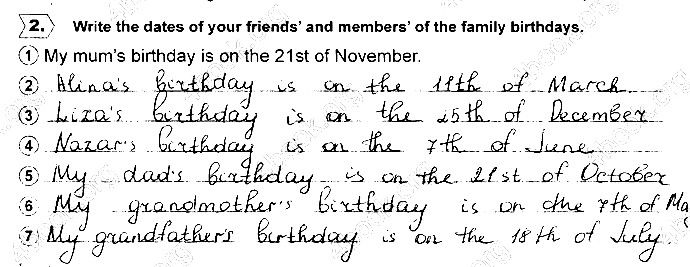 2. Write the dates of your friends' and members' of the family birthdays.
1 My mum's birthday is on the 21st of November.
2 Alina's birthday is on the 11th of March
3 Liza's birthday is on the 25th of December
4 Nazar's birthday is on the 7th of June
5 My dad's birthday is on the 21st of October
6 My grandmother's birthday is on the 7th of Ma
7 My grandfather's birthday is on the 18th of July.